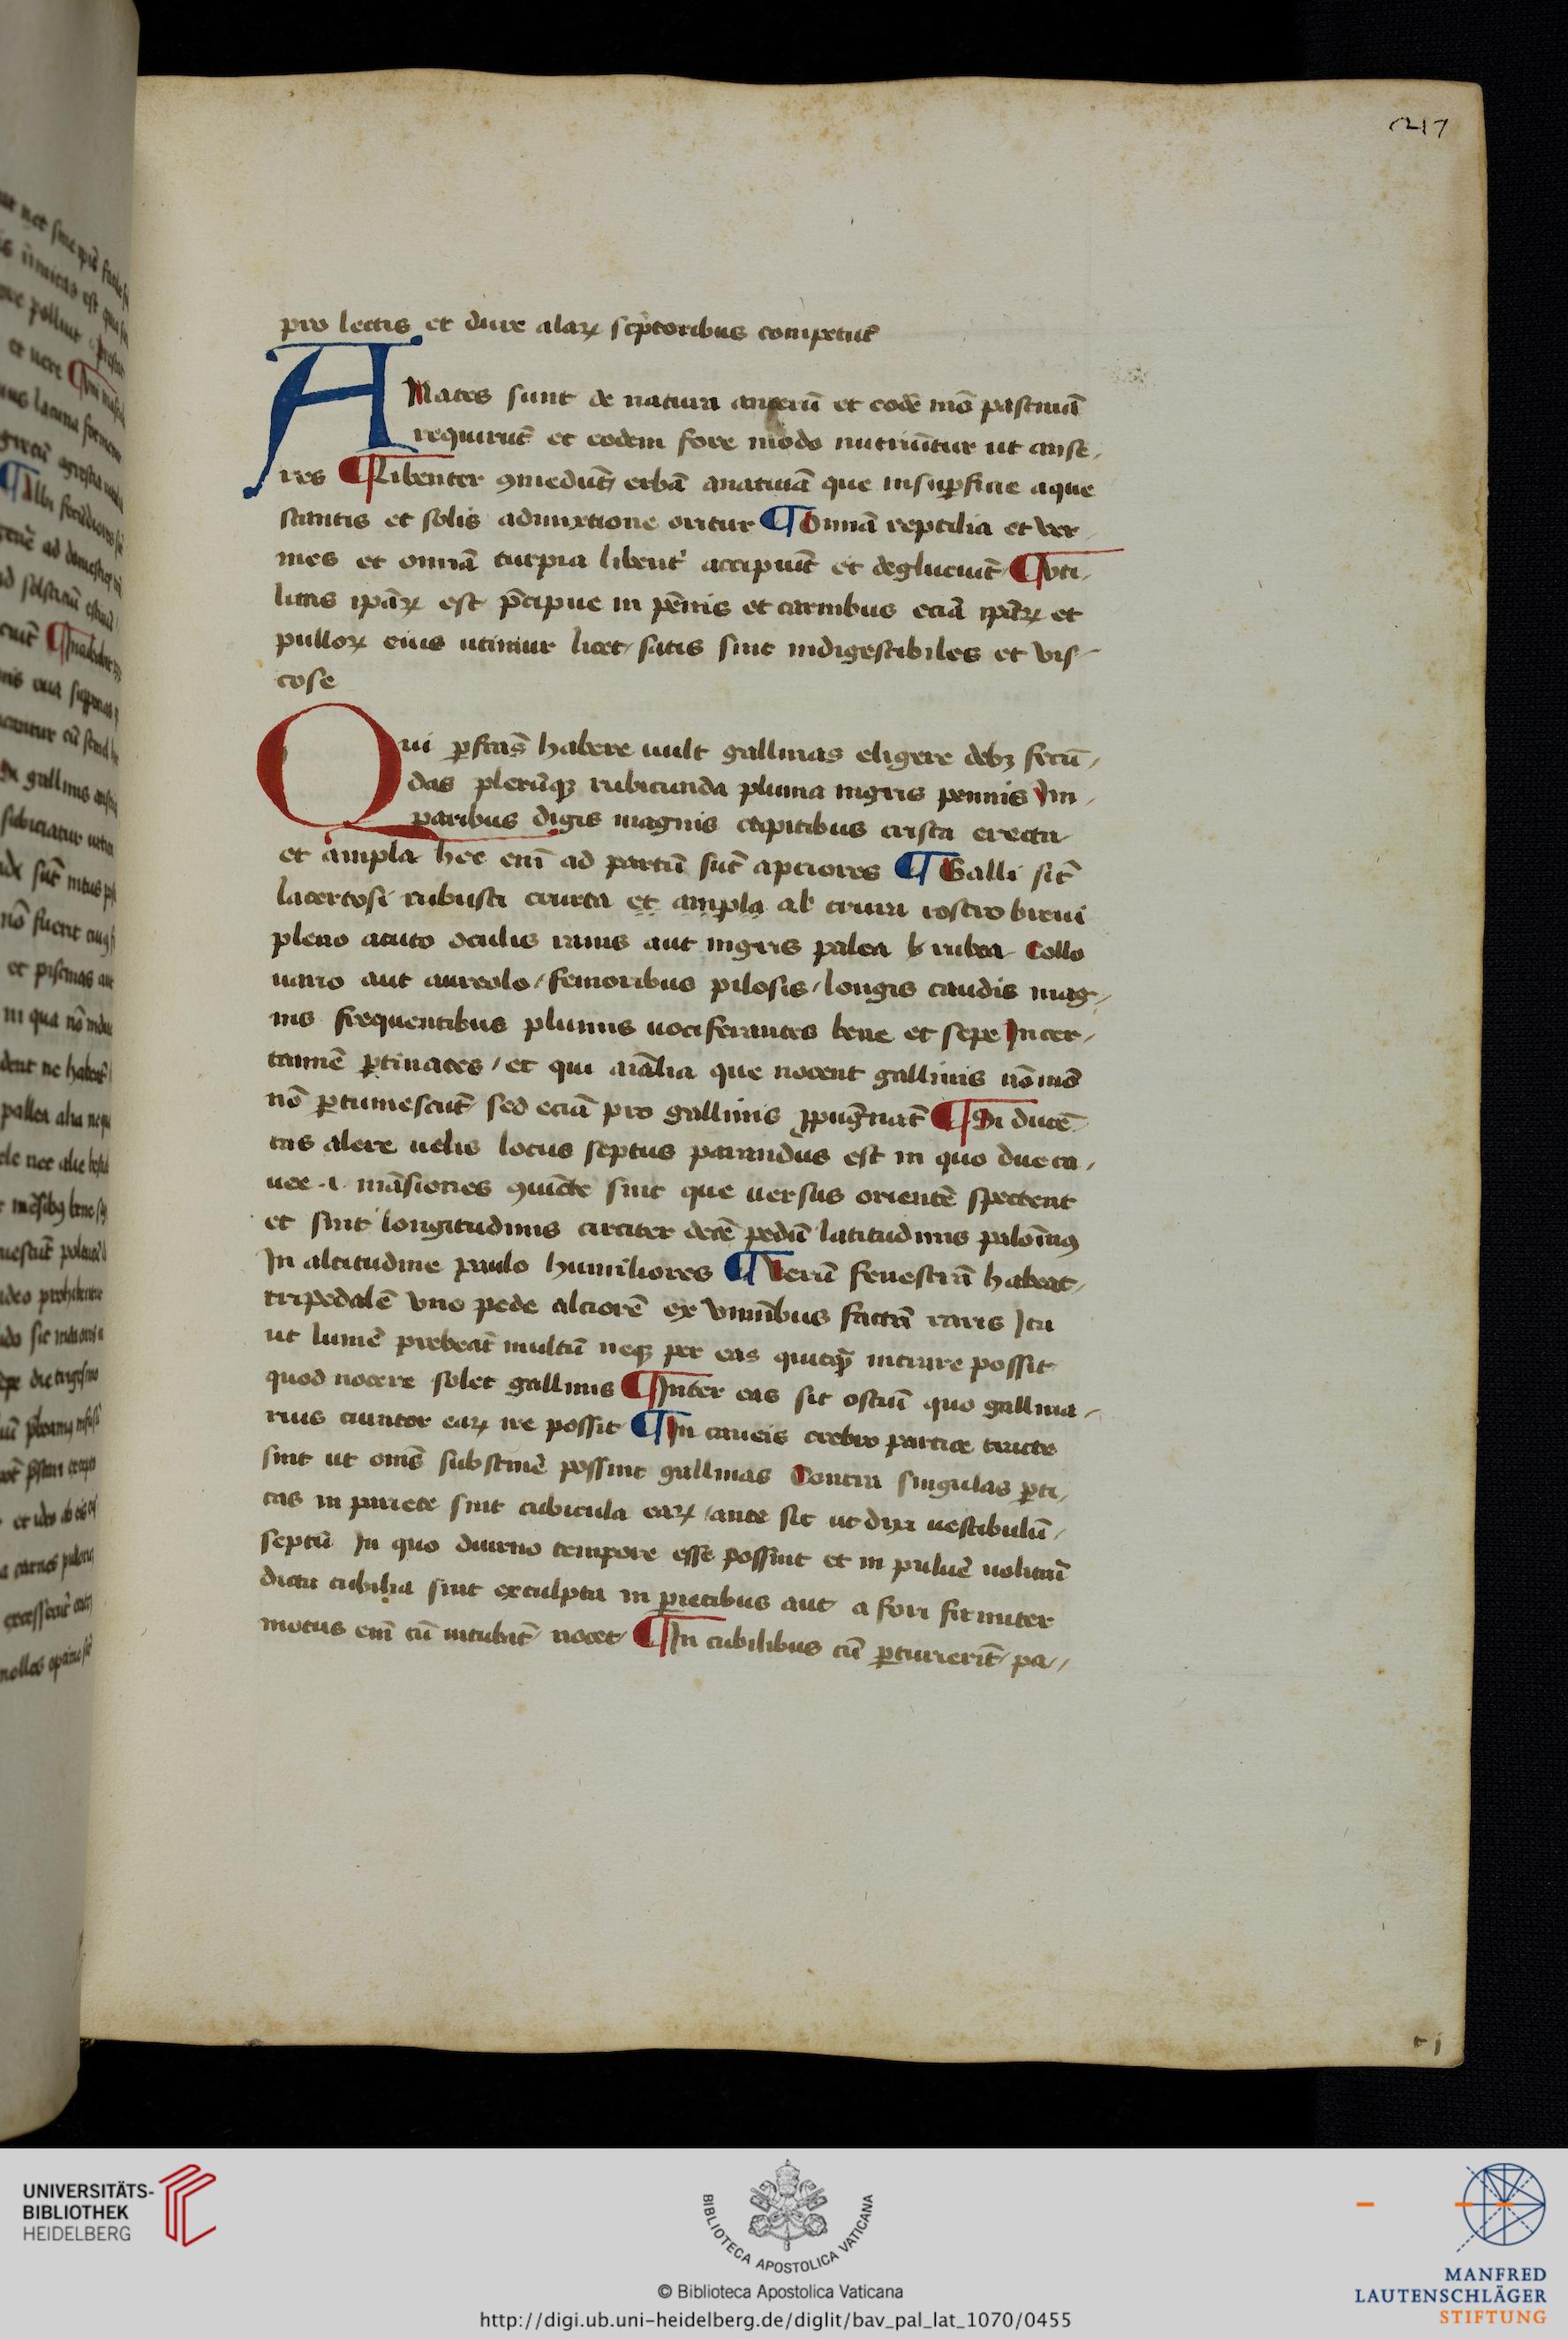 217
pro lectis et dure alaꝝ sc̄ptoribus competūt
AMates sunt de natura anserū et eodē mō pastinā
requirūt et eodem fore modo nutriūtur ut anse,
res ¶ Libenter ꝯmedūt erbā anatinā que insuꝑficie aque
stantis et solis admixtione oritur ¶ Omīa reptilia et ver,
mes et omīa turpia libent᷑ accipiūt et degluciūt ¶ vti,
litas ip̄aꝝ est p̄cipue in pēnis et carnibus eciā ip̄aꝝ et
pulloꝝ eius utimur licet satis sint indigestibiles et vis-
cose
Qui ꝑfcās habere uult gallinas eligere debꝫ fecū,
das plerūqꝫ rubicunda pluma nigris pennis Im,
paribus digis magnis capitibus crista erecta
et ampla hee enī ad partū sūt apciores ¶ Galli sīt
lacertosi rubusti et ampla ab crura rostro breui
pleno acuto oculis rauis aut nigris palea rubea Collo
uario aut aureolo / femoribus pilosis / longis caudis mag,
nis frequentibus plumis uociferantes bene et sepe Incer,
tamē ꝑtinaces / et qui aīalia que nocent gallinis nō mō
nō ꝑtimescūt sed eciā pro gallinis ꝓpugnāt ¶ Si ducē
tas alere uelis locus septus parandus est in quo due ca,
uee .i. māsiones ꝯiūcte sint que uersus orientē spectent
et sint longitudinis circiter decē pedū latitudinis
In altitudine paulo humiliores ¶ Verū fenestrā habeat,
tripedalē vno pede alciorē ex viminibus factā raris Ita
ut lumē prebeāt multū neqꝫ per eas quicq̄ intrare possit
quod nocere solet gallinis ¶ Inter eas sit ostiū quo gallina,
rius curator eaꝝ ire possit ¶ In caueis crebro partice
sint ut om̄s substinē possint gallinas Contra singulas ꝑti,
cas in pariete sint cubicula eaꝝ / ante sit ut dixi uestibulū,
septū In quo diurno tempore esse possint et in puluē uolitār̄
dicta cubilia sint exculpta in ꝑietibus aut a fori firmiter
motus enī cū incubāt nocet ¶ In cubilibus cū ꝑturierīt pa,,
r j
UNIVERSITÄTS-
BIBLIOTHEK
HEIDELBERG
BIBLIOTECA APOSTOLICA VATICANA
© Biblioteca Apostolica Vaticana
http://digi.ub.uni-heidelberg.de/diglit/bav_pal_lat_1070/0455
MANFRED
LAUTENSCHLÄGER
STIFTUNG